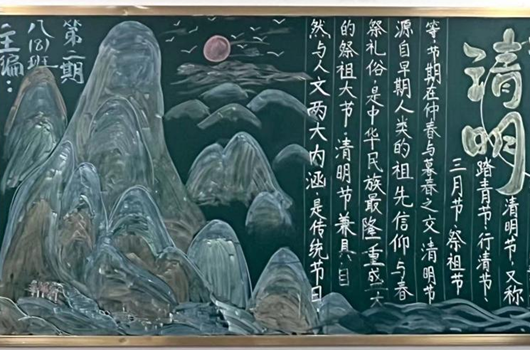 清明
清明节,又称
踏青节、行清节、
三月节、祭祖节
等,节期在仲春与暮春之交。清明节
源自早期人类的祖先信仰与春
祭礼俗,是中华民族最隆重盛大
的祭祖大节。清明节兼具自
然与人文两大内涵,是传统节日
第二期
八(8)班
主编: